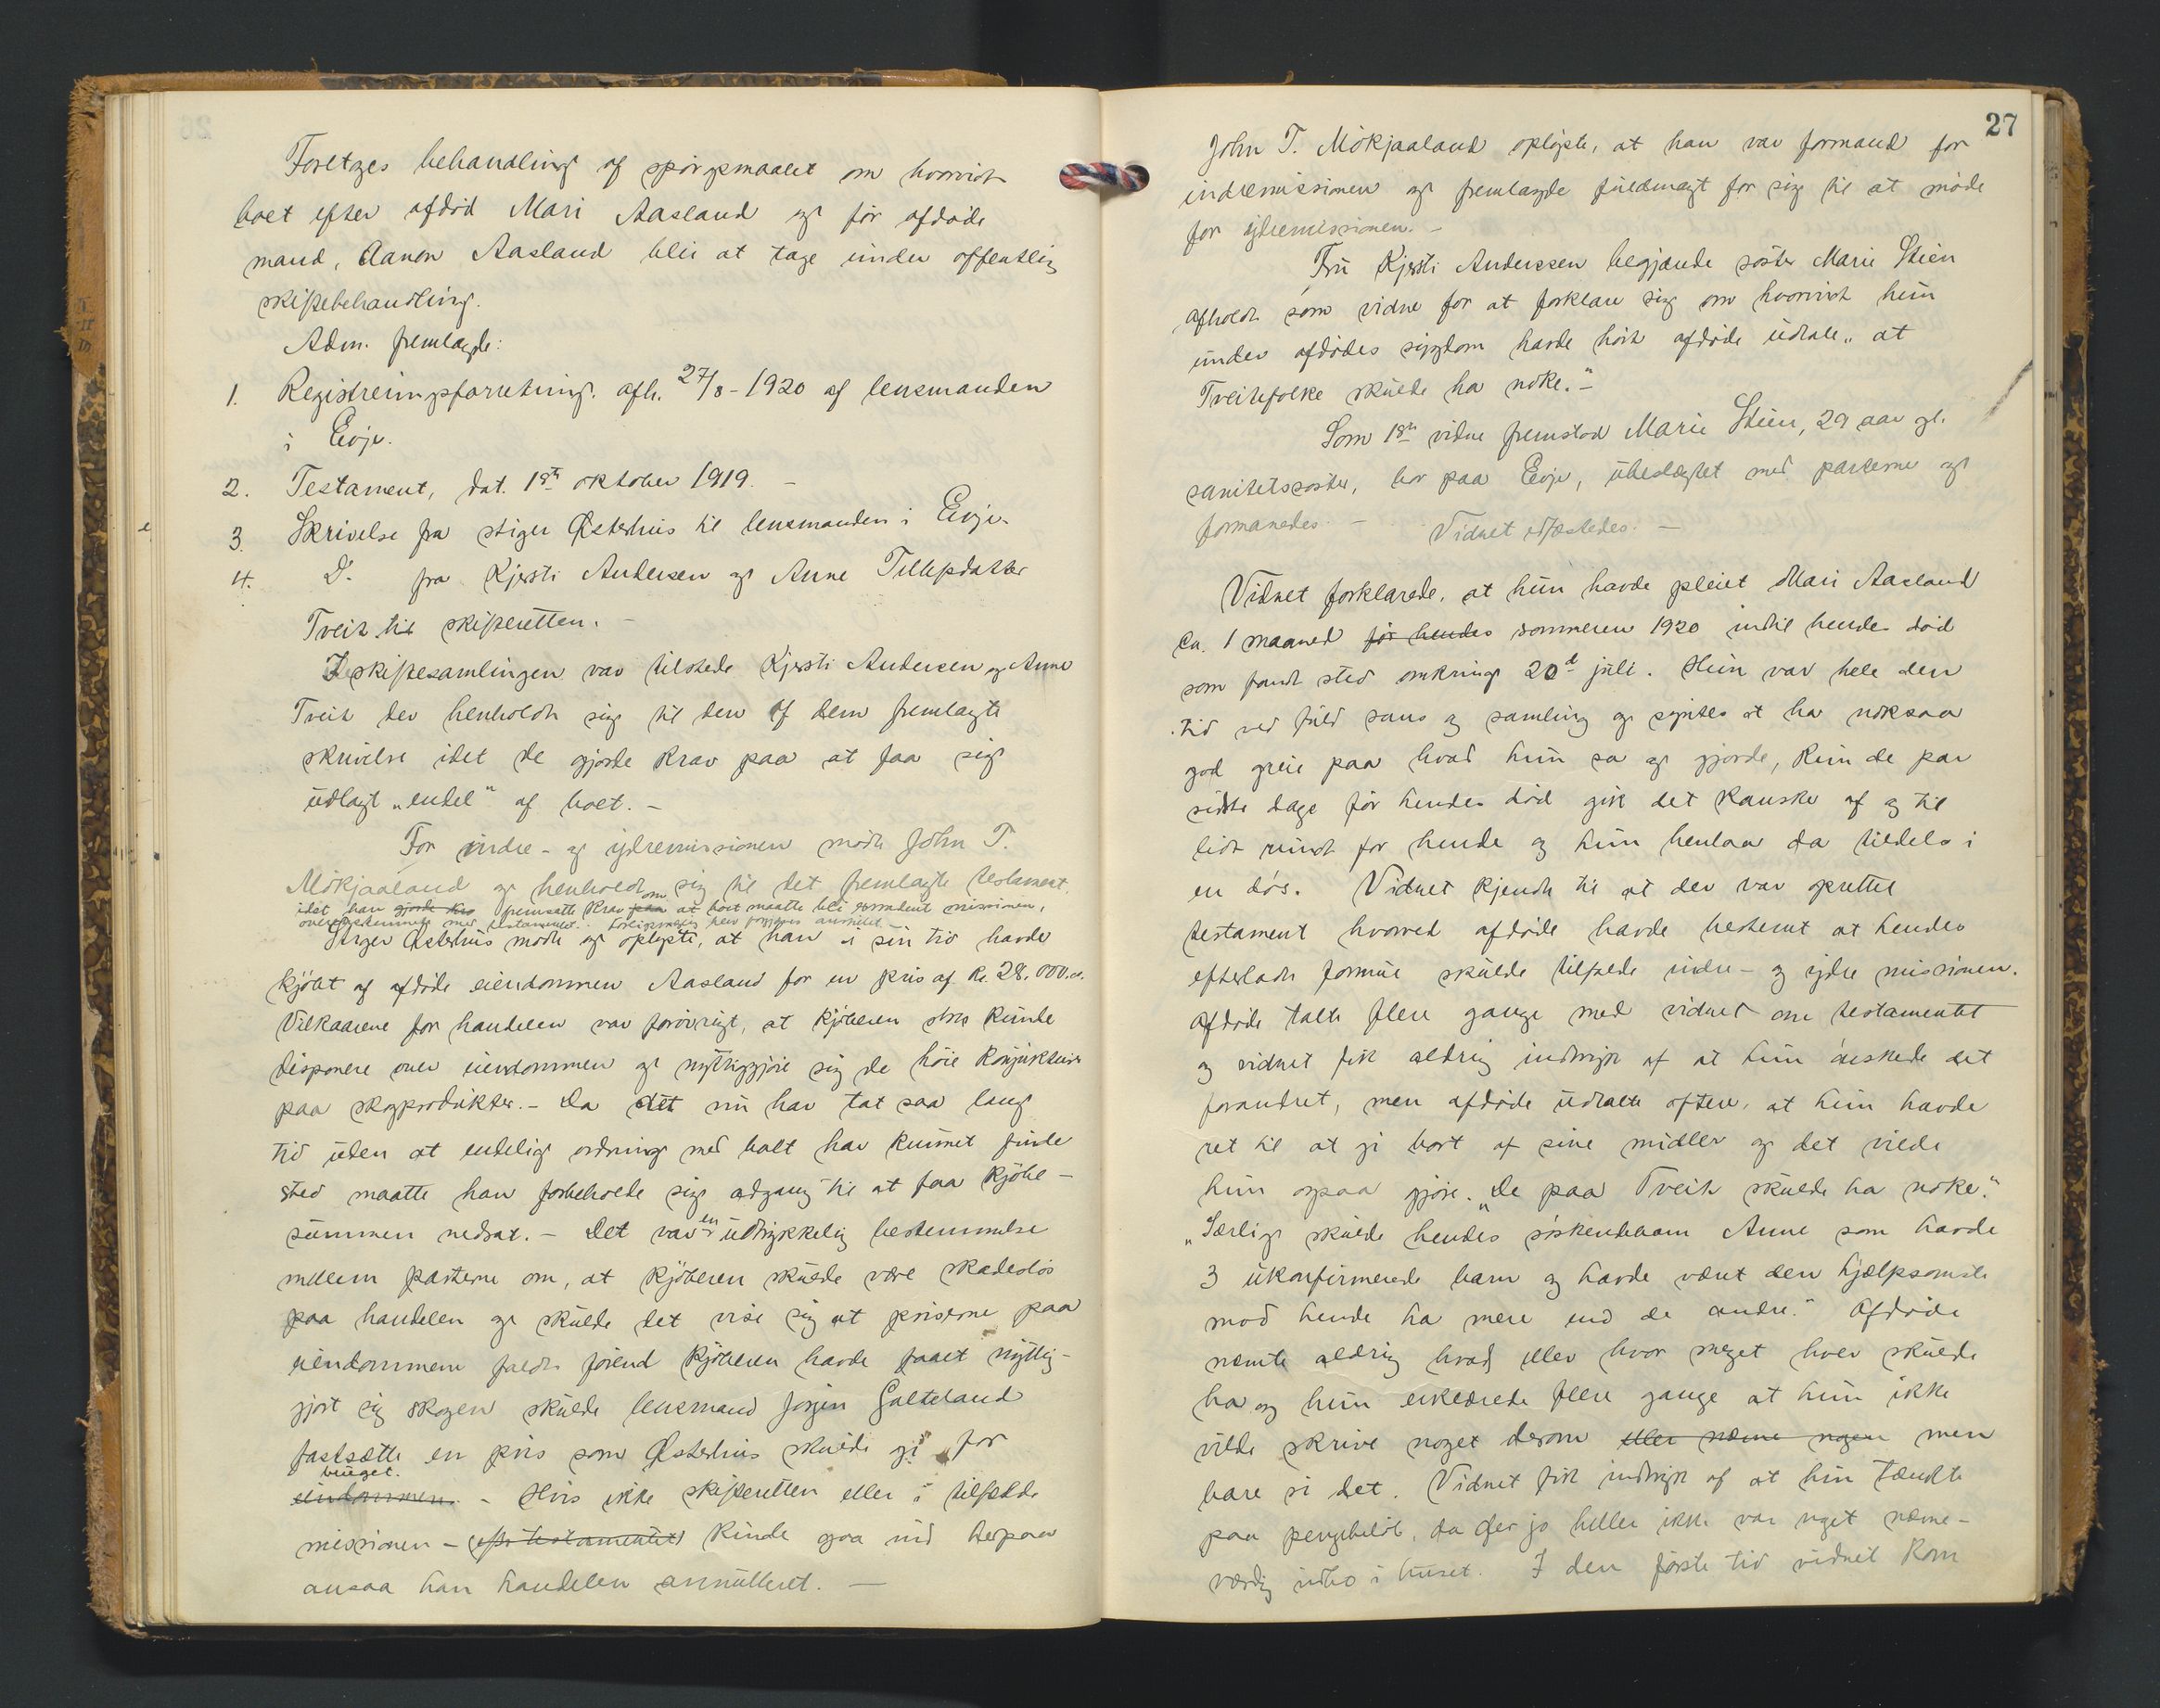 Foretages behandling af spørgsmaalet om hvorvidt
boet efter afdød Mari Aasland og før afdøde
mand, Aanon Aasland blir at tage under offentlig
skiftebehandling.
Adm. fremlagde:
1. Registreringsforretning. afh. 27/8-1920 af lensmanden
i Evje.
2. Testament, dat. 1ste oktober 1919. -
3. Skrivelse fra stiger Østerhus til lensmanden i Evje.
4. D. fra Kjersti Andersen og Anne Tellefsdatter
Tveit til skifteretten. -
I skiftesamlingen var tilstede Kjersti Andersen og Anne
Tveit der henholdt sig til den af dem fremlagte
skrivelse idet de gjorde krav paa at faa sig
udlagt „endel“ af boet. -
For indre- og ydremissionen mødte John T.
Mökjaaland og henholdt sig til det fremlagte testament,
idet han gjorde krav fremsatte krav paa om at boet maatte bli missionen,
overensstemmende med testamentet.
Stiger Østerhus mødte og oplyste, at han i sin tid havde
kjøbt af afdøde eiendommen Aasland for en pris af Kr. 28.000.00.
Vilkaarene for handelen var forøvrigt, at kjøberen straks kunde
disponere over eiendommen og nyttiggjøre sig de høie konjunkturer
paa skogprodukter. - Da det nu har tat saa lang
tid uden at endelig ordning med boet har kunnet finde
sted maatte han forbeholde sig adgang til at faa kjøbe-
summen nedsat. - Det var en udtrykkelig bestemmelse
mellem parterne om, at kjøberen skulde være skadesløs
paa handelen og skulde det vise sig at priserne paa
eiendommene faldt førend kjøberen havde faaet nyttig-
gjort sig skogen skulde lensmand Jørgen Galteland
fastsætte en pris som Østerhus skulde gi for
bruget.
eiendommen. - Hvis ikke skifteretten eller i tilfælde
missionen - (efter testamentet) kunde gaa ind herpaa
ansaa han handelen annulleret. -
27
John T. Mökjaaland oplyste, at han var formand for
indremissionen og fremlagde fuldmagt for sig til at møde
for ydremissionen. -
Fru Kjersti Anderssen begjærede søster Marie Stien
afholdt som vidne for at forklare sig om hvorvidt hun
under afdødes sygdom havde hørt afdøde udtale „at
Tveitefolke skulde ha noke.“ -
Som 1ste vidne fremstod Marie Stien, 29 aar gl.
sanitetssøster, bor paa Evje, ubeslægtet med parterne og
formanedes. - Vidnet edfæstedes. -
Vidnet forklarede, at hun havde pleiet Mari Aasland
ca. 1 maaned før hendes sommeren 1920 indtil hendes død
som fandt sted omkring 20de juli. Hun var hele den
tid ved fuld sans og samling og syntes at ha noksaa
god greie paa hvad hun sa og gjorde, kun de par
sidste dage før hendes død gik det kanske af og til
lidt rundt for hende og hun henlaa da tildels i
en døs. Vidnet kjendte til at der var oprettet
testament hvorved afdøde havde bestemt at hendes
efterladte formue skulde tilfalde indre- og ydre missionen.
Afdøde talte flere gange med vidnet om testamentet
og vidnet fik aldrig indtryk af at hun ønskede det
forandret, men afdøde udtalte ofte, at hun havde
ret til at gi bort af sine midler og det vilde
hun ogsaa gjøre. „De paa Tveit skulde ha noke.“
„Særlig skulde hendes søskendebarn Anne som havde
3 ukonfirmerede barn og havde været den hjælpsomste
mod hende ha mere end de andre.“ Afdøde
nævnte aldrig hvad eller hvor meget hver skulde
ha og hun erklærede flere gange at hun ikke
vilde skrive noget derom eller nævne nogen men
bare si det. Vidnet fik indtryk af at hun tænkte
paa pengebeløb, da der jo heller ikke var noget nævne-
værdig indbo i huset. I den første tid vidnet kom